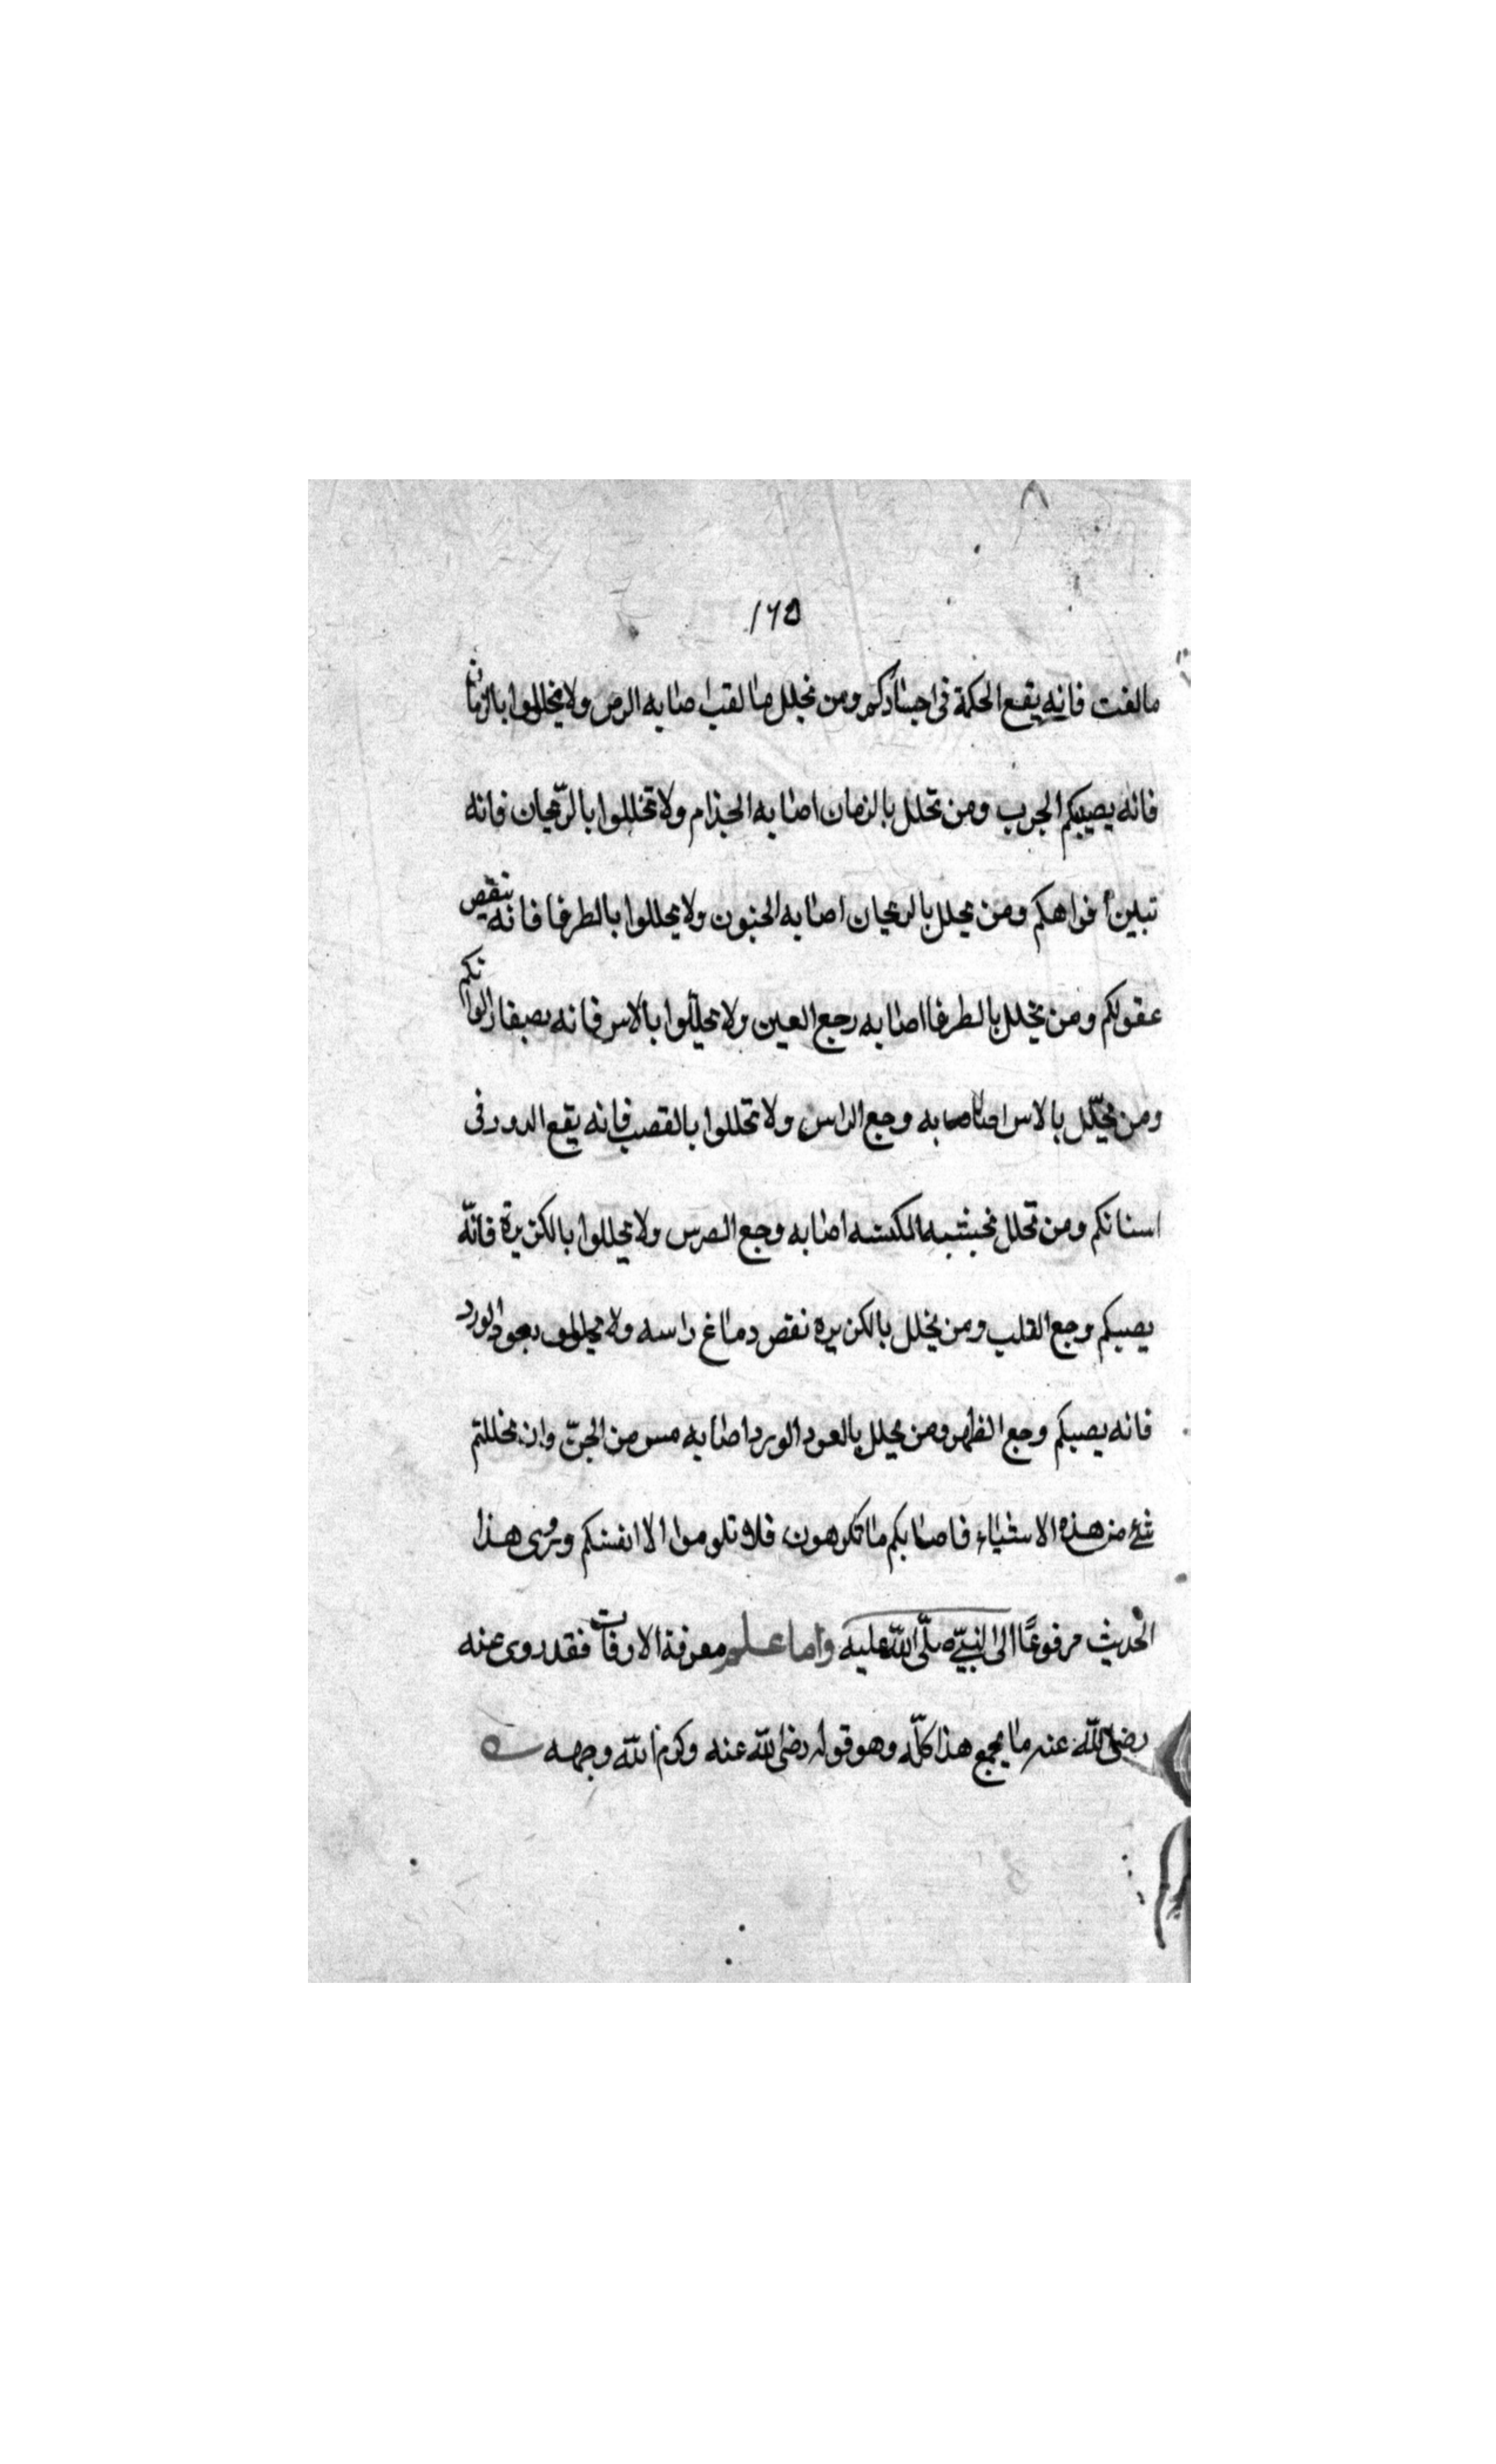 ١٦٥
مالفت فانه يقع الحكة فى اجسادكم ومن تخلل بالقت اصابه الرص ولا تخللوا بالرمان
فانه يصيبكم الجرب ومن تخلل بالرمان اصابه الجذام ولا تخللوا بالريحان فانه
افواهكم ومن تخلل بالريحان اصابه الجنون ولا تخللوا بالطرفا فانه ينقص
عقولكم ومن تخلل بالطرفا اصابه رجع العين ولا تخللوا بالاس فانه الوانكم
ومن تخلل بالاس اصابه وجع الراس ولا تخللوا بالقصب فانه يقع الدود فى
اسنانكم ومن تخلل اصابه وجع الضرس ولا تخللوا بالكزبرة فانّه
يصيبكم وجع القلب ومن تخلل بالكزبره نقص دماغ راسه ولا بعود الورد
فانه يصيبكم وجع الظهر ومن تخلل بالعود الورد اصابه مس من الجنّ وان تخللتم
شئ من هذه الاشياء فاصابكم ما تكرهون فلا تلوموا الا انفسكم ويروى هذا
الحديث مرفوعًا الى النبيّ صلّى اللّه عليه واما علم معرفة الاوفات فقد روى عنه
رضى اللّه عنه ما يجمع هذا كلّه وهو قوله رضى اللّه عنه وكرم اللّه وجهه